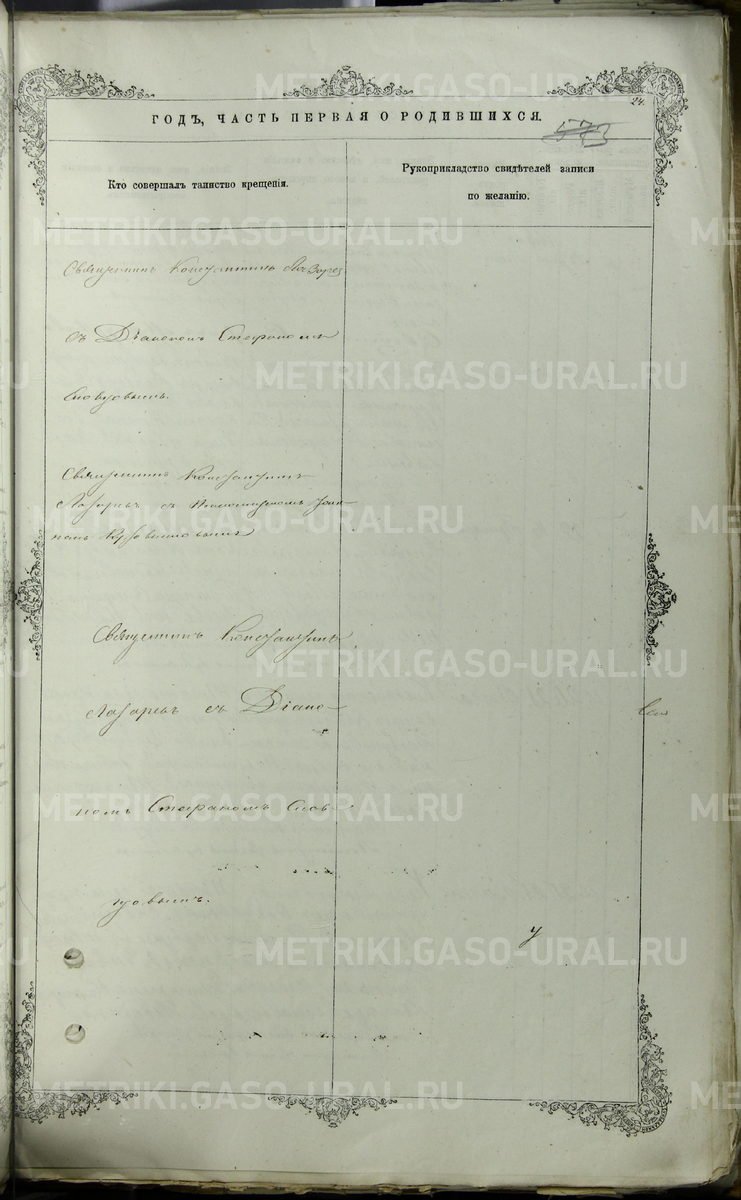 24.
ГОДЪ, ЧАСТЬ ПЕРВАЯ О РОДИВШИХСЯ.
573
Кто совершалъ таинство крещенія.
Рукоприкладство свидѣтелей записи
по желанію.
Священникъ Константинъ
съ Діакономъ Стефаномъ
Словцовымъ.
Священникъ Константинъ
Лазаревъ съ
Священникъ Константинъ
Лазаревъ съ Діако-
номъ Стефаномъ Слов-
цовымъ.
METRIKI.GASO-URAL.RU